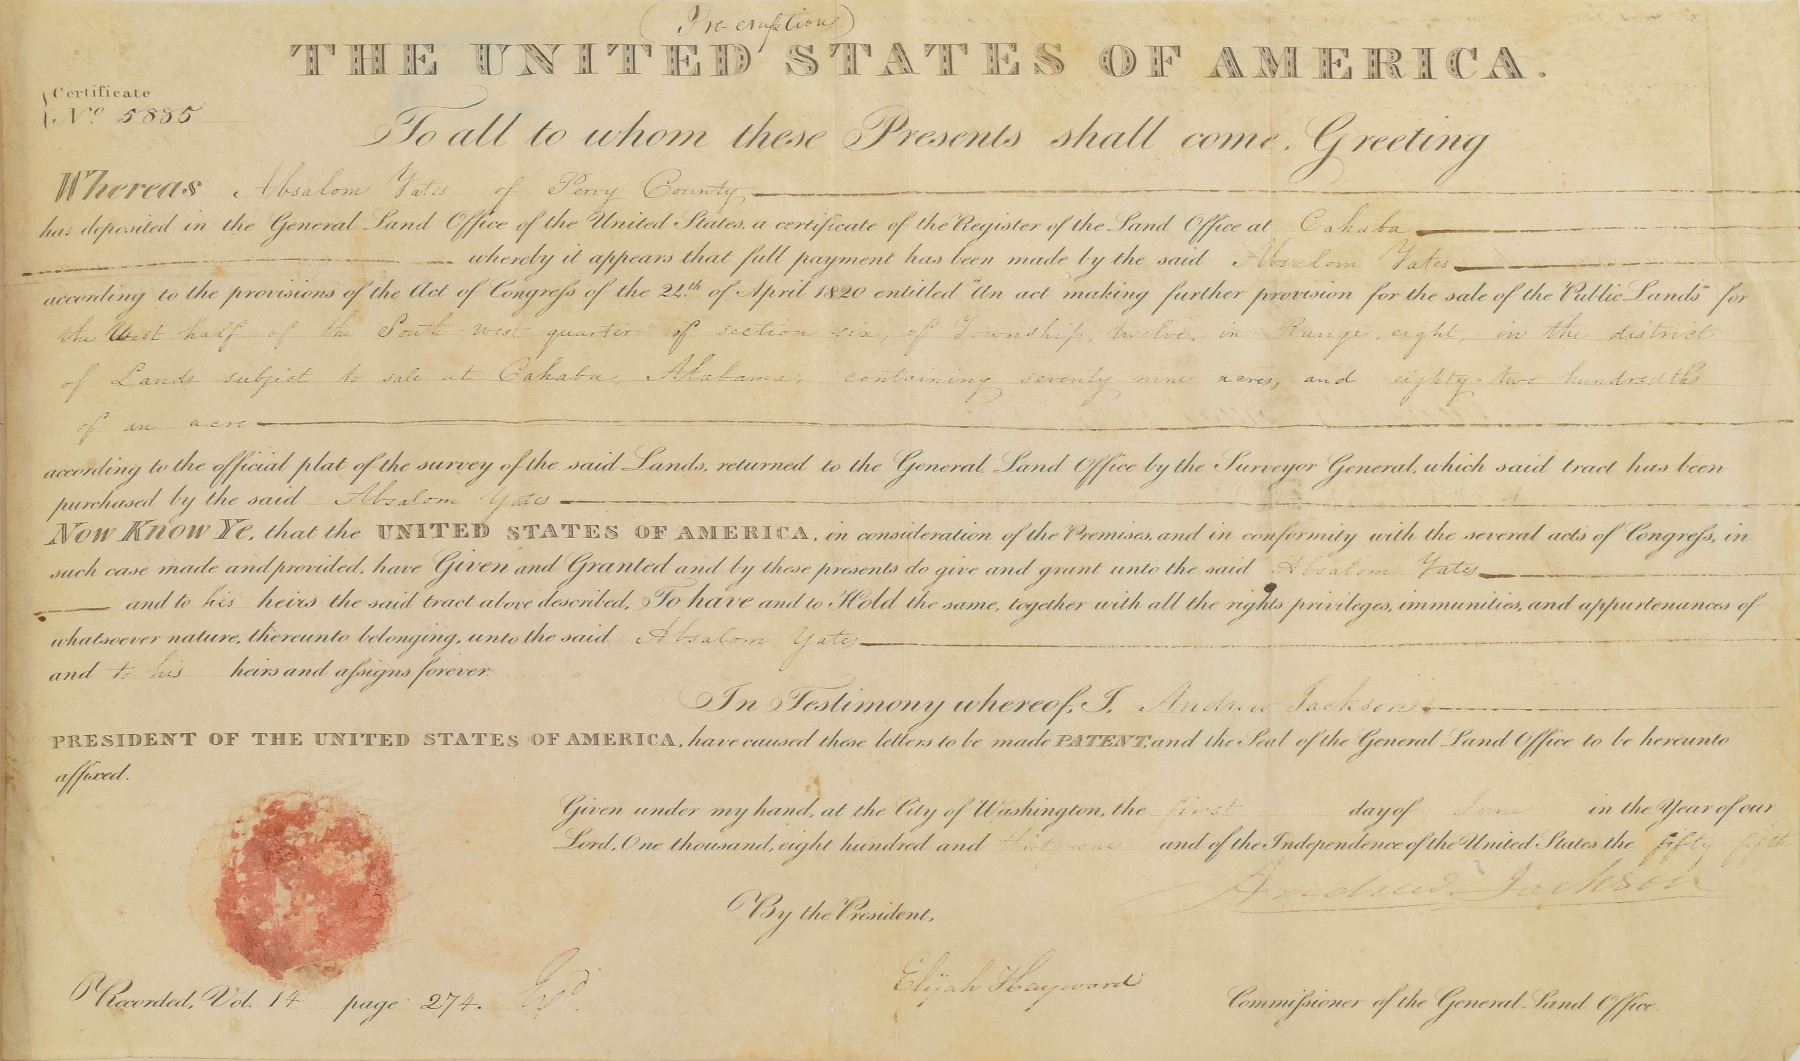 (Pre-emption)
THE UNITED STATES OF AMERICA.
Certificate
No 5885
To all to whom these Presents shall come, Greeting
Whereas Absalom Yates of Perry County
has deposited in the General Land Office of the United States, a certificate of the Register of the Land Office at Cahaba
whereby it appears that full payment has been made by the said Absalom Yates
according to the provisions of the Act of Congress of the 24th of April 1820 entitled "An act making further provision for the sale of the Public Lands" for
the West half of the South west quarter of section six, of Township, twelve, in Range, eight, in the district
of Lands subject to sale at Cahaba, Alabama, containing seventy nine acres, and eighty-two hundredths
of an acre
according to the official plat of the survey of the said Lands, returned to the General Land Office by the Surveyor General, which said tract has been
purchased by the said Absalom Yates
Now Know Ye, that the UNITED STATES OF AMERICA, in consideration of the Premises, and in conformity with the several acts of Congress, in
such case made and provided, have Given and Granted and by these presents do give and grant unto the said Absalom Yates
and to his heirs the said tract above described, To have and to Hold the same, together with all the rights privileges, immunities, and appurtenances of
whatsoever nature, thereunto belonging, unto the said Absalom Yates
and to his heirs and assigns forever.
In Testimony whereof, I, Andrew Jackson
PRESIDENT OF THE UNITED STATES OF AMERICA, have caused these letters to be made PATENT, and the Seal of the General Land Office to be hereunto
affixed.
Given under my hand, at the City of Washington, the first day of June in the Year of our
Lord, One thousand, eight hundred and thirty one and of the Independence of the United States the fifty fifth
Andrew Jackson
By the President,
Elijah Hayward
Commissioner of the General Land Office.
Recorded, Vol. 14 page 274.